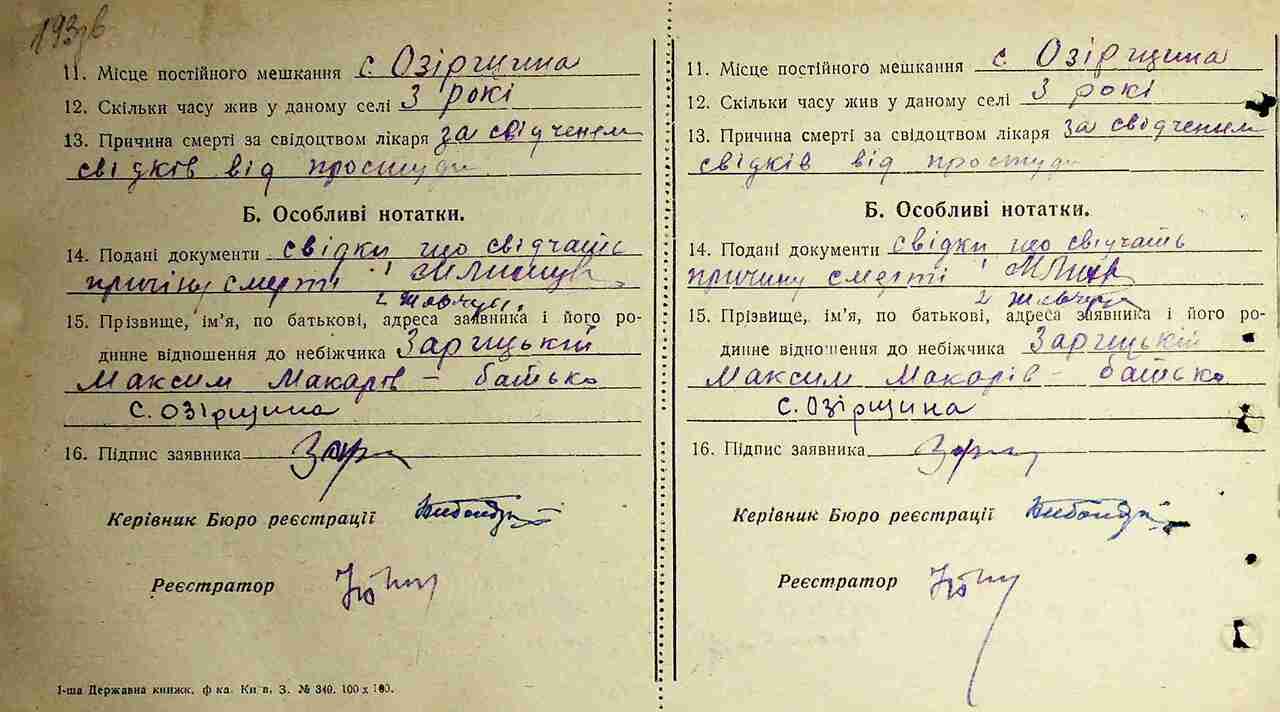 193зв
11. Місце постійного мешкання с. Озірщина
12. Скільки часу жив у даному селі 3 рокі
13. Причина смерті за свідоцтвом лікаря за свідченем
свідків від простуди
Б. Особливі нотатки.
14. Подані документи свідки що свідчать
причіну смерті і
2 Жовчун,
15. Прізвище, ім'я, по батькові, адреса заявника і його ро-
динне відношення до небіжчика Зарицькій
Максим Макарів – батько
с. Озірщина
16. Підпис заявника
Керівник Бюро реєстрації
Реєстратор
1-ша Державна книжк. ф-ка. Київ. З. № 340. 100 х 100.
11. Місце постійного мешкання с. Озірщина
12. Скільки часу жив у даному селі 3 рокі
13. Причина смерті за свідоцтвом лікаря за свідченем
свідків від простуди
Б. Особливі нотатки.
14. Подані документи свідки що свідчать
причину смерті і
15. Прізвище, ім'я, по батькові, адреса заявника і його ро-
динне відношення до небіжчика Зарицькій
Максим Макарів – батько
с. Озірщина
16. Підпис заявника
Керівник Бюро реєстрації
Реєстратор